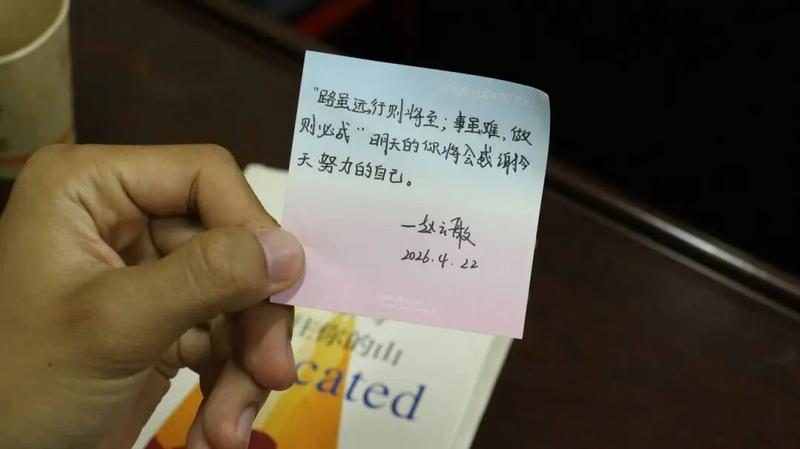 GOOD LUCK TO YOU
"路虽远,行则将至;事虽难,做
则必成"明天的你将会感谢今
天努力的自己。
—赵云敏
2026.4.22
生你的山
cated